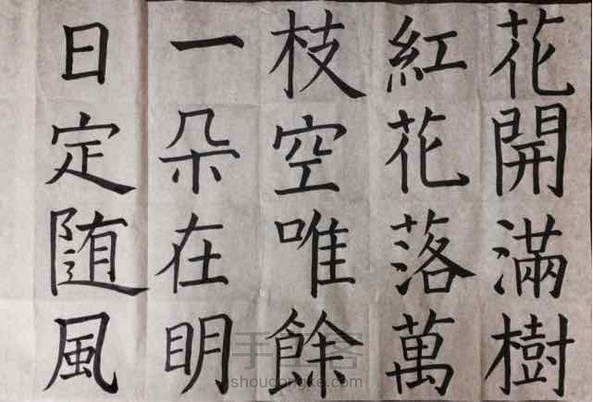 花開滿樹
紅花落萬
枝空唯餘
一朵在明
日定随風
手工客
shougongke.com